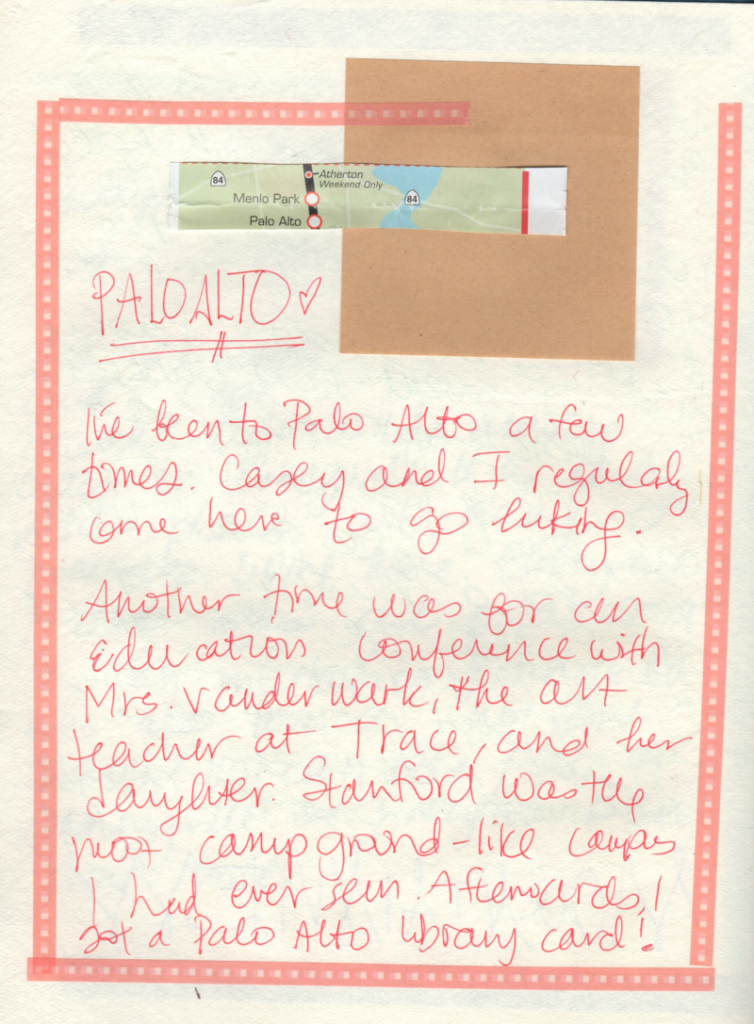 84
Atherton
Weekend Only
Menlo Park
84
Palo Alto
PALO ALTO
I've been to Palo Alto a few
times. Casey and I regulaly
come here to go hiking.
Another time was for an
education conference with
Mrs. Vanderwark, the art
teacher at Trace, and her
daughter. Stanford was the
most campground-like campus
I had ever seen. Afterwards, I
got a Palo Alto library card!